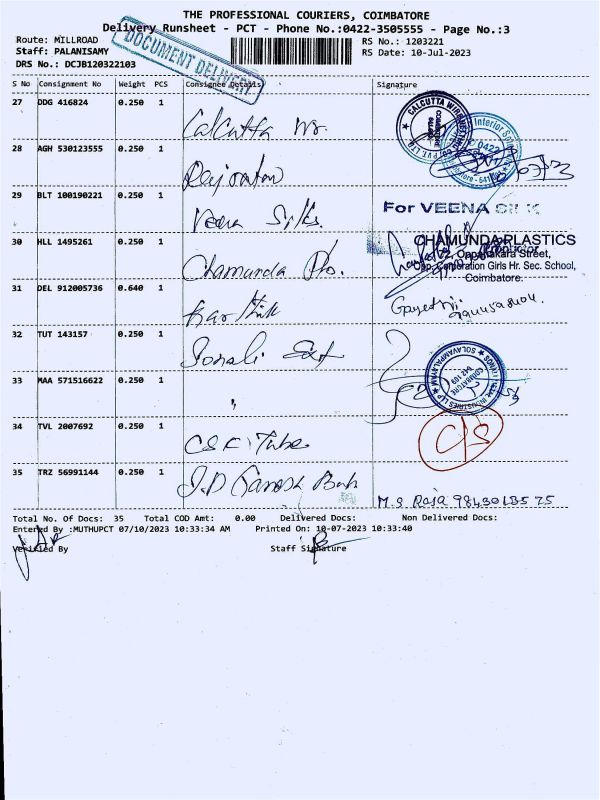 THE PROFESSIONAL COURIERS, COIMBATORE
Delivery Runsheet - PCT - Phone No.:0422-3505555 - Page No.:3
Route: MILLROAD
Staff: PALANISAMY
DRS No.: DCJB120322103
DOCUMENT DELIVERY
RS No.: 1203221
RS Date: 10-Jul-2023
S No Consignment No Weight PCS Consignee Details Signature
27 DDG 416824 0.250 1 Calcutta
CALCUTTA WIRE
COIMBATORE
Interior
0422
28 AGH 530123555 0.250 1
29 BLT 100190221 0.250 1 Veena Silks
For VEENA SILK
30 HLL 1495261 0.250 1 Chamunda
CHAMUNDA PLASTICS
Oppanakara Street,
Opp. Corporation Girls Hr. Sec. School,
Coimbatore.
31 DEL 912005736 0.640 1 Karthik
32 TUT 143157 0.250 1 Sonali
33 MAA 571516622 0.250 1 "
INDUSTRIES LLP
SOLAVAMPALAYAM
COIMBATORE
642 109
34 TVL 2007692 0.250 1 Tube
C/S
35 TRZ 56991144 0.250 1
M.S Raja
Total No. Of Docs: 35 Total COD Amt: 0.00 Delivered Docs: Non Delivered Docs:
Entered By :MUTHUPCT 07/10/2023 10:33:34 AM Printed On: 10-07-2023 10:33:40
Verified By Staff Signature